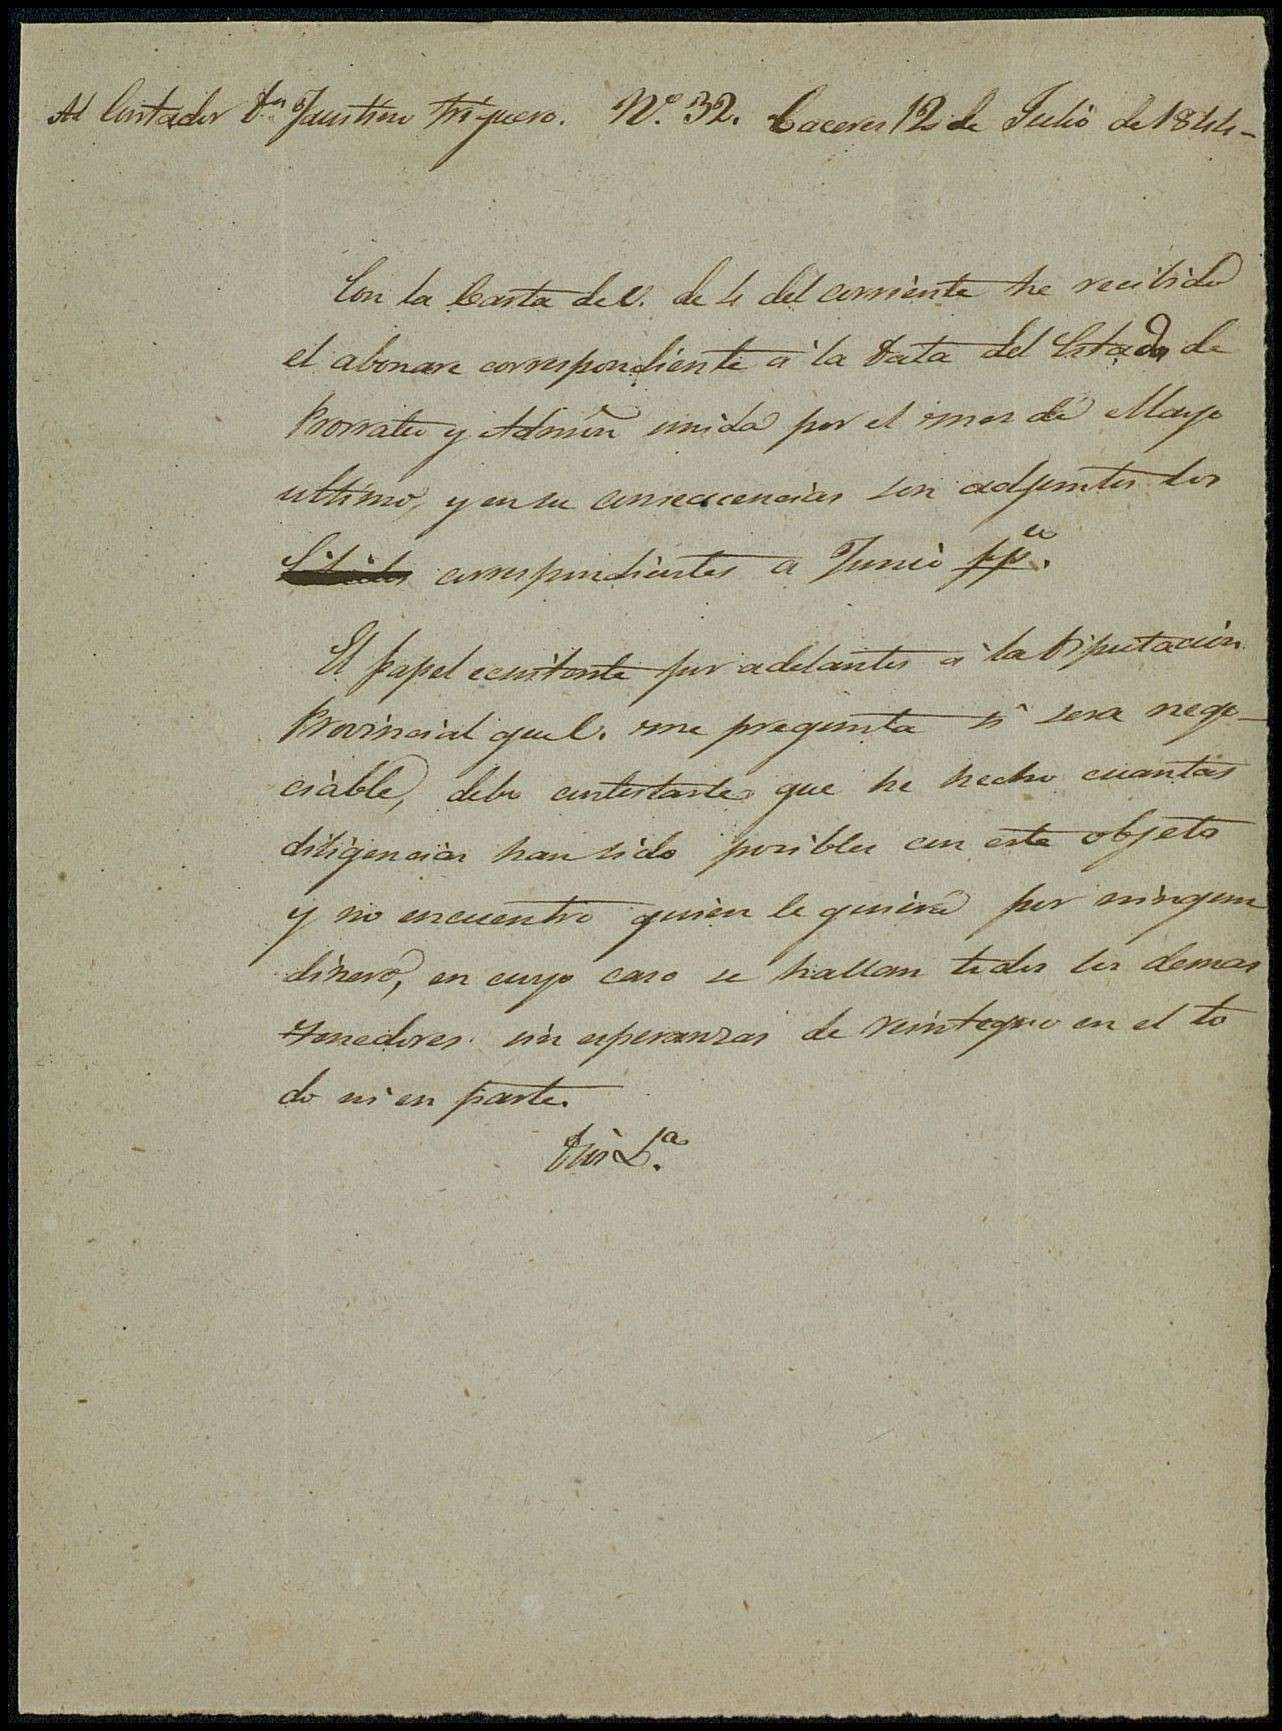 Al Contador Dn Faustino Triguero. Nº. 32. Caceres 12 de Julio de 1844-
Con la Carta de V. de 4 del corriente he recibido
el abonare correspondiente á la Data del Estado de
Prorrateo y Admon unida por el mes de Mayo
ultimo, y en su consecuencias son adjuntos los
correspondientes a Junio ppdo.
El papel ecsistente por adelantos á la Diputacion
Provincial que V. me pregunta si sera nego-
ciable, debo contestarle que he hecho cuantas
diligencias han sido posibles con este objeto
y no encuentro quien le quiera por ningun
dinero, en cuyo caso se hallan todos los demas
tenedores sin esperanzas de reintegro en el to
do ni en parte.
Dios Lª.